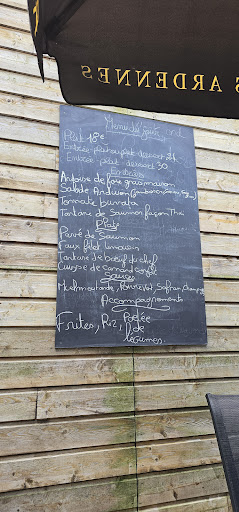 ARDENNES
Menu du jour
Plat 18€
Entrée-plat ou plat-dessert
Entrée-plat-dessert 30
Entrées
de foie gras maison
Salade
Tomate burrata
Tartare de Saumon façon Thaï
Plats
Pavé de Saumon
Faux filet limousin
Tartare de bœuf du chef
Cuisse de canard confit
Sauces
Miel moutarde, Roquefort, Safran,
Accompagnements
Frites, Riz, Poêlée
de
légumes